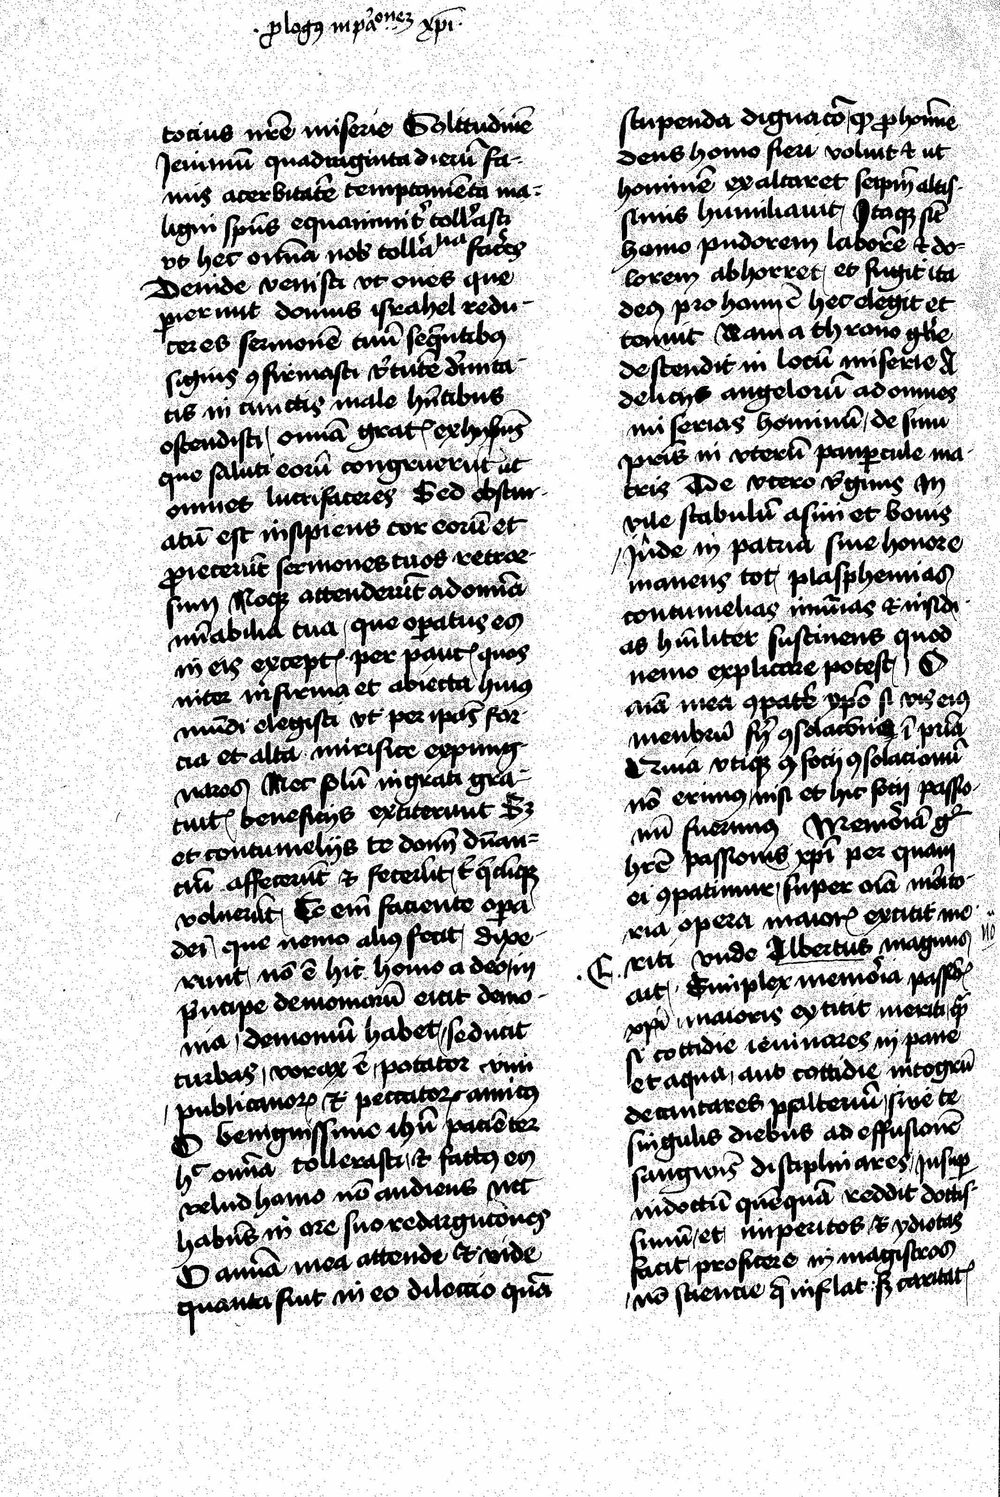 ·ꝓlogꝰ in pa̅onez xp̅i·
tocius nr̅e miserie Solitudine̅
Ieiuniu̅ quadraginta dieru̅ fa-
mis acerbitate̅ temptame̅ta ma-
ligni sp̅us equanimit͛ toll͛asti
vt hec om̅ia nob̅ tolli͛a fac͛es
Deinde venisti vt oues que
perierunt domus israhel redu-
ceres sermone̅ tuu̅ seque̅tibꝰ
signis ꝯfirmasti v͛tute̅ diuita-
tis in cunctis male hn̅tibus
ostendisti om̅ia grat exhibuis
que saluti eoru̅ congruerut̅ ut
omnes lucrifaceres Sed obscur-
atu̅ est insipiens cor eoru̅ et
ꝓiecerut̅ sermones tuos retror-
sum Neqꝫ attenderut̅ ad om̅ia
mi͛abilia tua que op̲atus es
in eis except per pauc quos
inter infirma et abiecta huiꝰ
mu̅di elegisti vt per ipos̅ for-
cia et alta mirifice expung-
nares Nec solu̅ ingrati gra-
tuit beneficijs extiterunt Sꝫ
et contumelijs te domi̅ dn̅an-
ciu̅ affecerut̅ et fecerut̅ t̅ q̅cu̅qꝫ
voluerut̅ Te eni̅ faciente op̲a
dei que nemo aliꝰ fecit dixe-
runt no̅ e̅ hic homo a deo in
p͛ncipe demonioru̅ eicit demo-
nia demoniu̅ habet seducit
turbas vorax e̅ potator vini
publicanor et peccator amicꝰ
O benignissime ihu̅ pacie̅ter
hͨ om̅ia tollerasti et factus es
velud homo no̅ audiens nec
habe̅s in ore suo redarguciones
O anima mea attende et vide
quanta fuit in eo dilectio qua̅
stupenda dignac̅o qꝫ ꝓ homi̅e
deus homo fieri voluit et ut
homine̅ exaltaret seip̅m altis-
simis humiliauit Itaqꝫ sic̅
homo pudorem labore̅ et do-
lorem abhorret et fugit ita
deꝰ pro homi̅e hec elegit et
tenuit Nam a throno gl̅ie
descendit in locu̅ miserie A
delicijs angeloru̅ ad omnes
miserias hominu̅ de sinu
pr̅is in vteru̅ paupercule ma-
tris De vtero v͛ginis In
vile stabulu̅ asini et bouis
Inde in patria sine honore
manens tot plasphemias
contumelias iniu̅ias et insidi-
as hu̅iliter sustinens quod
nemo explicare potest O
ai̅a mea ꝯpate̅ xp̅o si vis eiꝰ
membru̅ fieri ꝯsolac̅onis i̅ pr̅ia
Quia vtiqꝫ ꝯsocij ꝯsolacionu̅
no̅ erimus nisi et hic socij passio-
nu̅ fuerimus Memo͛ia g͛
hr̅e passionis xp̅i per quam
ei ꝯpatimur super oi̅a merito-
ria opera maior extitit me-
riti vnde Albertus magnus
ait Simplex memo͛ia passio̅
xp̅i maioris extitit meriti qᷓ
si cottidie ieiunares in pane
et aqua aut cottidie integru̅
decantares psalteriu̅ siue te
singulis diebus ad effusione̅
sanguis̅ disciplinares Insup̲
indoctu̅ que̅qua̅ reddit doctis-
simu̅ et imperitos et ydiotas
facit proficere in magistros
no̅ sciencie q̅ inflat sꝫ caritat